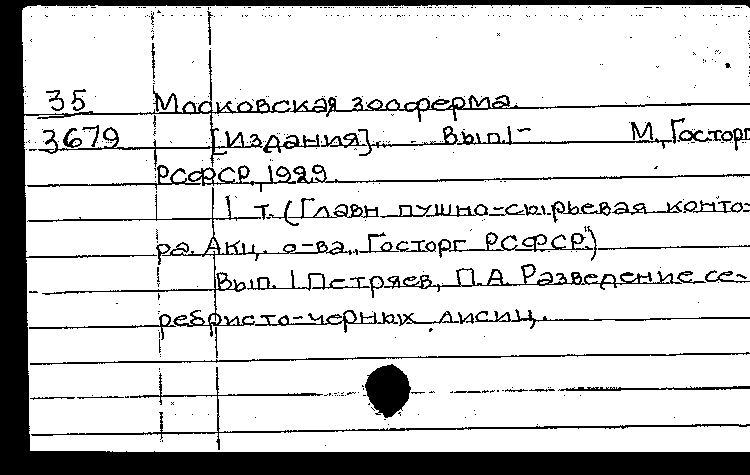 35 Московская зооферма.
3679 [Издания]. Вып.1- М., Госторг
РСФСР, 1929.
1 т. (Главн пушно-сырьевая конто-
ра. Акц. о-ва „Госторг РСФСР")
Вып. 1 Петряев, П.А. Разведение се-
ребристо-черных лисиц.